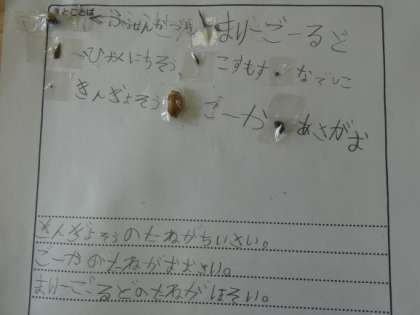 ふうせんかずら まりーごーるど
ひゃくにちそう こすもす なでしこ
きんぎょそう ごーや あさがお
きんぎょそうのたねがちいさい。
ごーやのたねがおおきい。
まりーごーるどのたねがほそい。